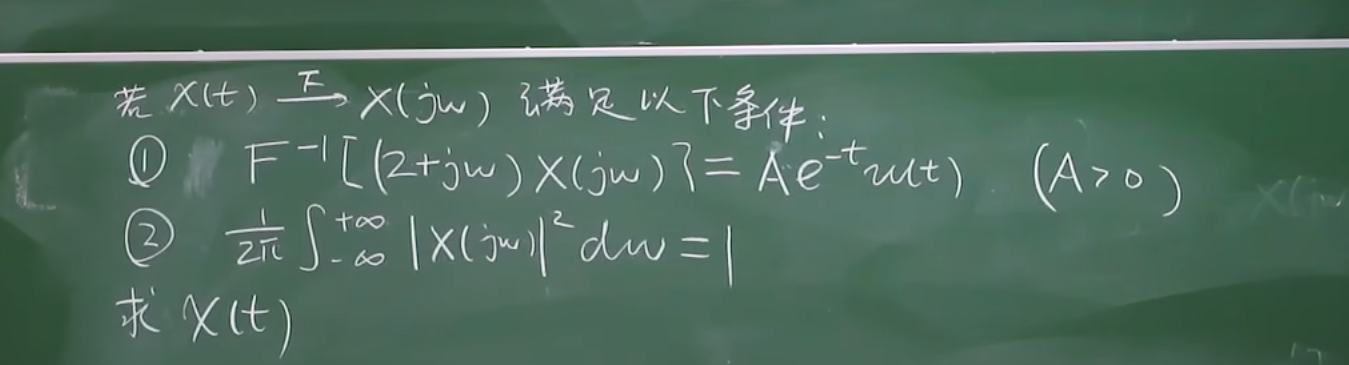 若 X(t) F→ X(jw) 满足以下条件:
① F⁻¹[(2+jw)X(jw)]=Ae⁻ᵗu(t) (A>0)
② 1/2π ∫₋∞⁺∞ |X(jw)|²dw=1
求 X(t)